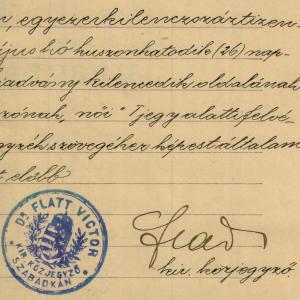 , egyezerkilenczszáztizen-
hó huszonhatodik (26) nap-
kiadvány kilencedik oldalának
női" I jegy alatti felvé-
szövegéhez képest általam
előbb.
DR FLATT VICTOR
KIR. KÖZJEGYZŐ
SZABADKÁN
kir. közjegyző